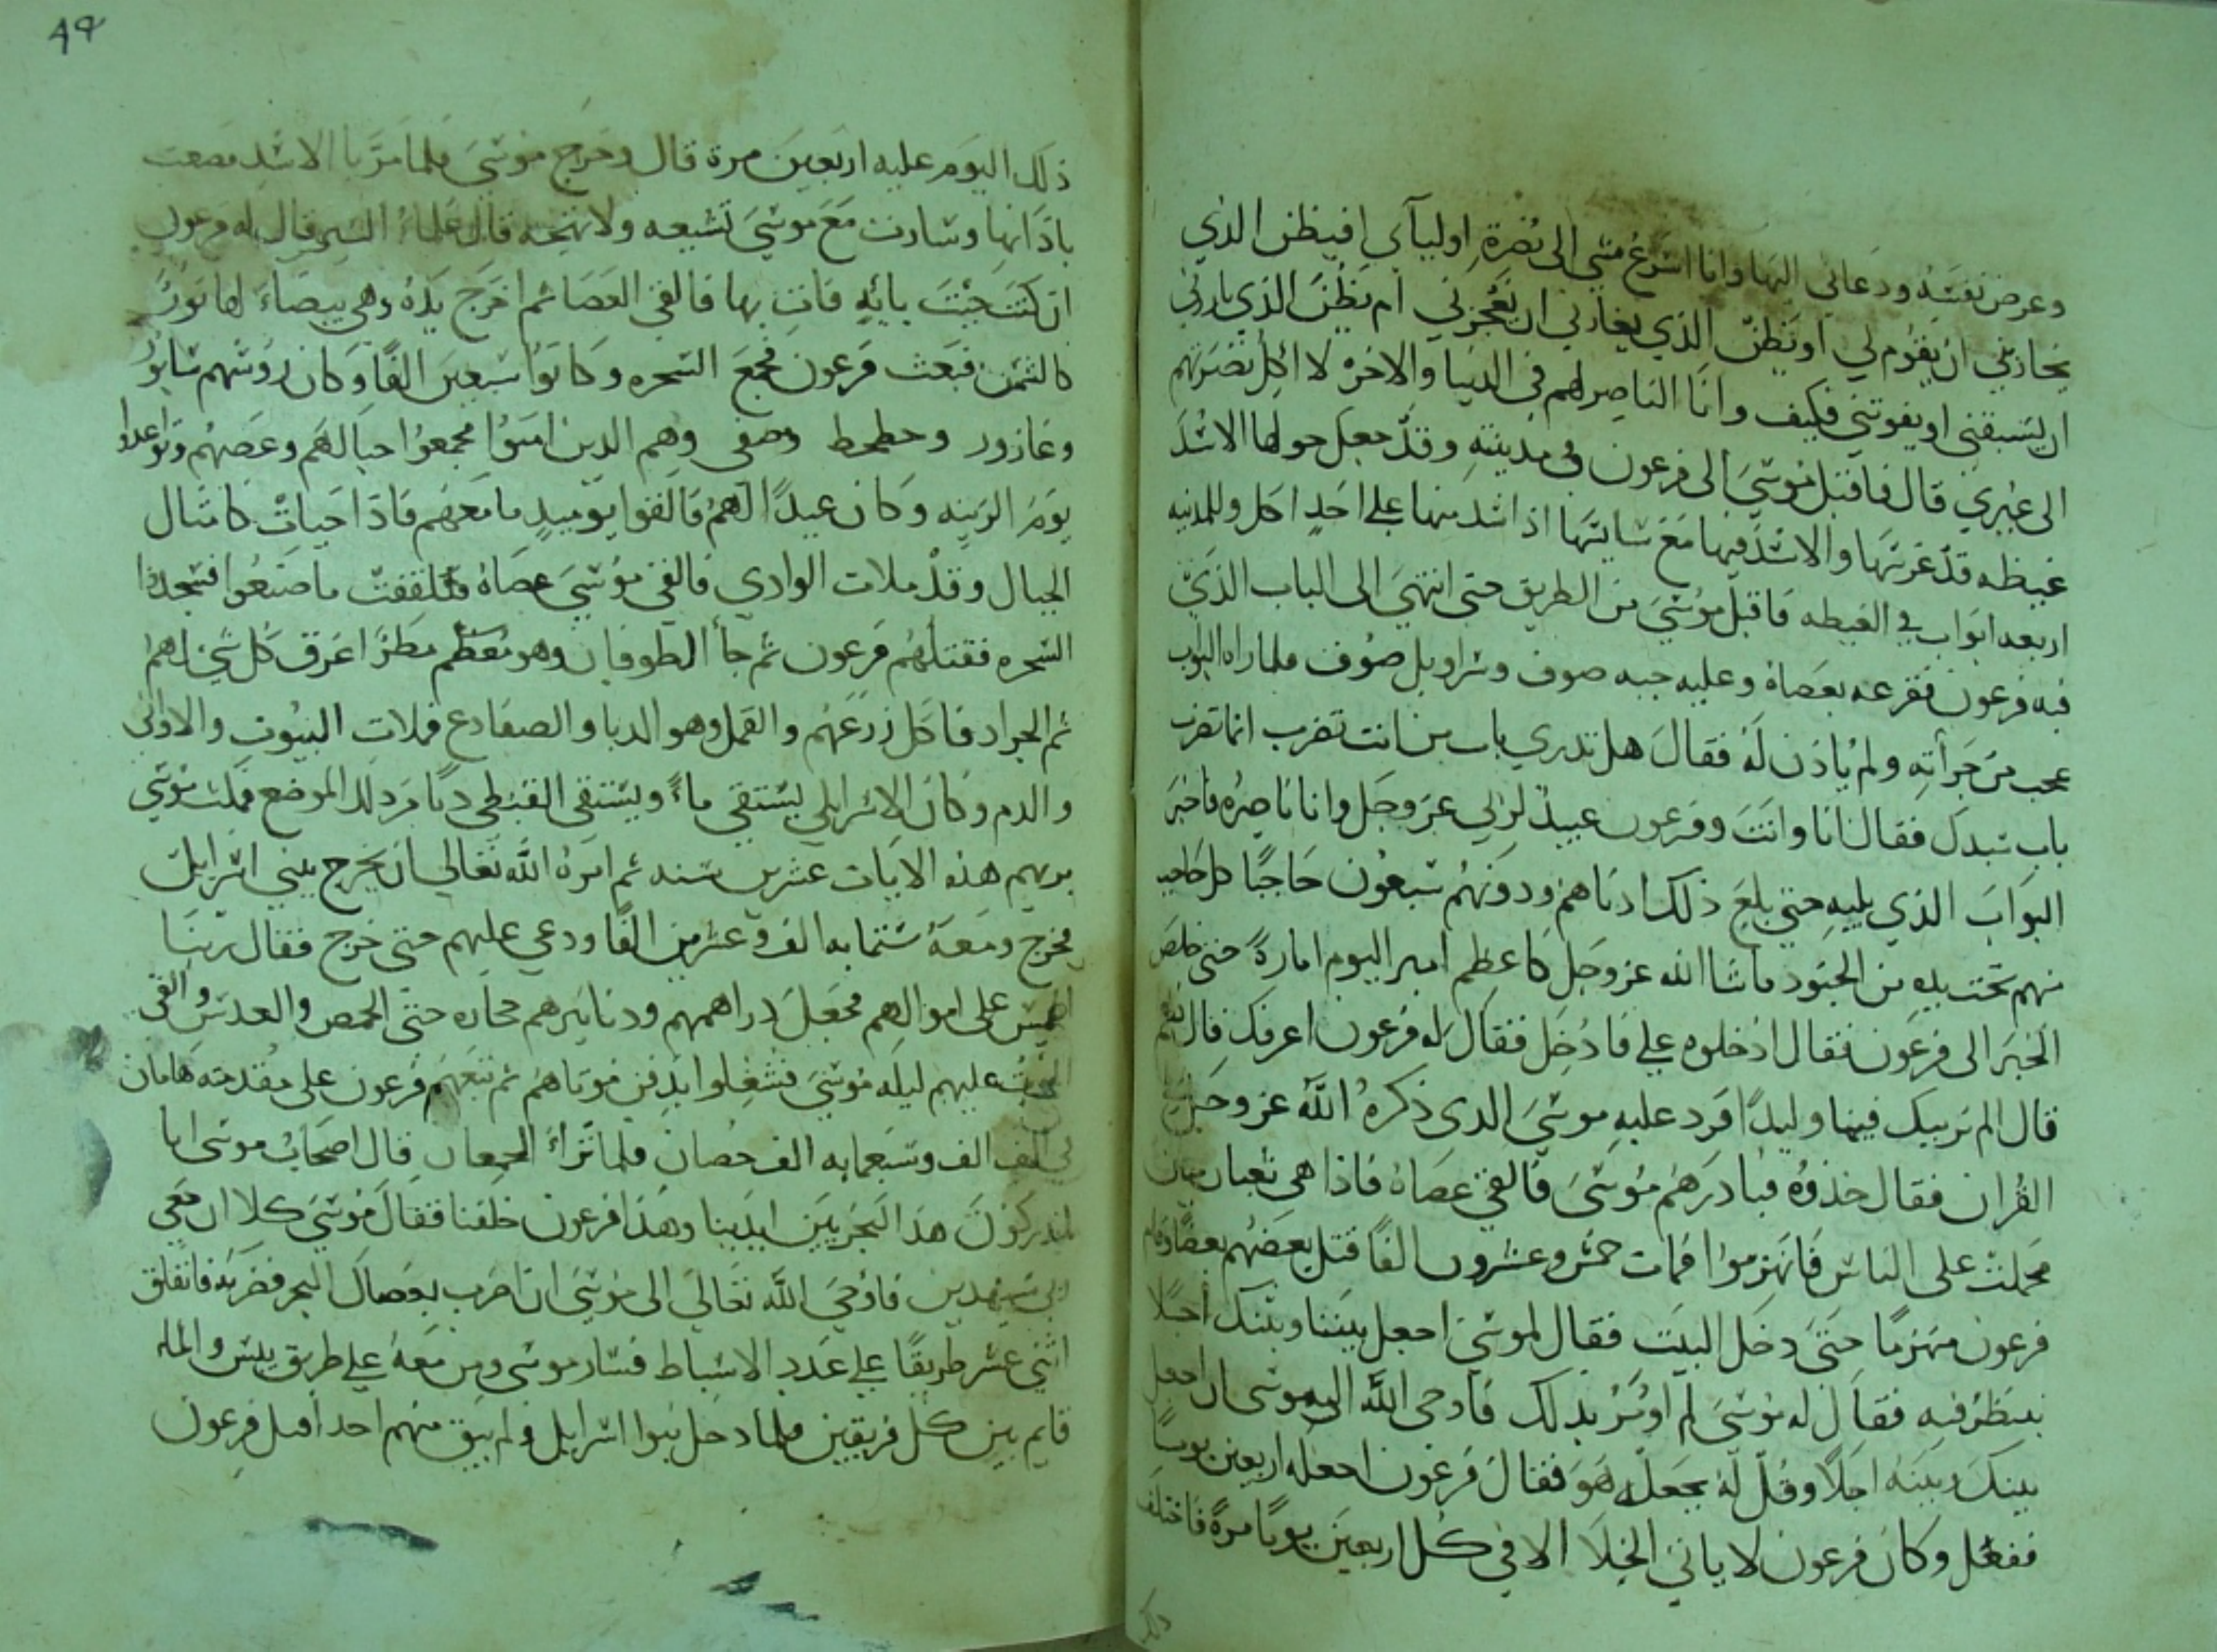 وعرض نفسه ودعاني اليها وانا اسرع مشي الى نصرة اوليآئي افيظن الذي
يحاربني ان يقوم لي او يظن الذي يعاديني ان يعجزني ام يظن الذي يبارزني
ان يسبقني او يفوتني فكيف وانا الناصر لهم في الدنيا والاخرة لا اكل نصرتهم
الى غيري قال فاقبل موسى الى فرعون في مدينته وقد جعل حولها الاسد
غيظه قد غرسها والاسد فيها مع ساستها اذا اشد منها على احد اكل وللمدينه
اربعه ابواب في الغيطه فاقبل موسى من الطريق حتى انتهى الى الباب الذي
فيه فرعون فقرعه بعصاه وعليه جبه صوف وسراويل صوف فلما راه البواب
عجب من جرأته ولم ياذن له فقال هل تدري باب من انت تضرب انما تضرب
باب سيدك فقال انا وانت وفرعون عبيد لربي عز وجل وانا ناصره فاخبر
البواب الذي يليه حتى بلغ ذلك ادناهم ودونهم سبعون حاجبا كل حاجب
منهم تحت يده من الجنود ماشا الله عز وجل كاعظم امير اليوم امارة حتى خلص
الخبر الى فرعون فقال ادخلوه علي فادخل فقال له فرعون اعرفك قال نعم
قال الم نربك فينا وليدا فرد عليه موسى الذى ذكره الله عز وجل في
القران فقال خذوه فبادرهم موسى فالقى عصاه فاذا هي ثعبان مبين
فحملت على الناس فانهزموا فمات خمس وعشرون الفا قتل بعضهم بعضا وقام
فرعون منهزما حتى دخل البيت فقال لموسى اجعل بيننا وبينك اجلا
ننظر فيه فقال له موسى لم اومر بذلك فاوحى الله الى موسى ان اجعل
بينك وبينه اجلا وقل له يجعله هو فقال فرعون اجعله اربعين يوما
ففعل وكان فرعون لا ياتي الخلا الا في كل اربعين يوما مرة فاختلف
ذلك
ذلك اليوم عليه اربعين مرة قال وخرج موسى فلما مر با الاسد مصعت
باذانها وسارت مع موسى تشيعه ولا تهيجه قال علماء السير قال له فرعون
ان كنت جئت بايه فات بها فالقى العصا ثم اخرج يده وهي بيضاء لها نور
كالشمس فبعث فرعون فجمع السحره وكانوا سبعين الفا وكان روسهم سابور
وعازور وحطحط ومصفى وهم الذين امنوا فجمعوا حبالهم وعصيهم وتواعدوا
يوم الزينه وكان عيدا لهم فالقوا يوميذ ما معهم فاذا حيات كامثال
الجبال وقد ملات الوادي فالقى موسى عصاه فتلقفت ما صنعوا فسجدوا
السحره فقتلهم فرعون ثم جأ الطوفان وهو معظم مطرا غرق كل شي لهم
ثم الجراد فاكل زرعهم والقمل وهو الدبا والضفادع فملات البيوت والاواني
والدم وكان الاسرايلي يستقي ماء ويستقي القبطي دما من ذلك الموضع فمكث موسى
يريهم هذه الايات عشرين سنه ثم امره الله تعالى ان يخرج ببني اسرايل
فخرج ومعه ستمايه الف وعشرين الفا ودعي عليهم حتى خرج فقال ربنا
اطمس على اموالهم فجعل دراهمهم ودنانيرهم حجاره حتى الحمص والعدس والقى
الموت عليهم ليله موسى فشغلوا بدفن موتاهم ثم تبعهم فرعون على مقدمته هامان
في الف الف وسبعمايه الف حصان فلما تراء الجمعان قال اصحاب موسى انا
لمدركون هذا البحر بين ايدينا وهذا فرعون خلفنا فقال موسى كلا ان معي
ربي سيهدين فاوحى الله تعالى الى موسى ان اضرب بعصاك البحر فضربه فانفلق
اثني عشر طريقا على عدد الاسباط فسار موسى ومن معه على طريق يبس والما
قايم بين كل فريقين فلما دخل بنوا اسرايل ولم يبق منهم احد اقبل فرعون